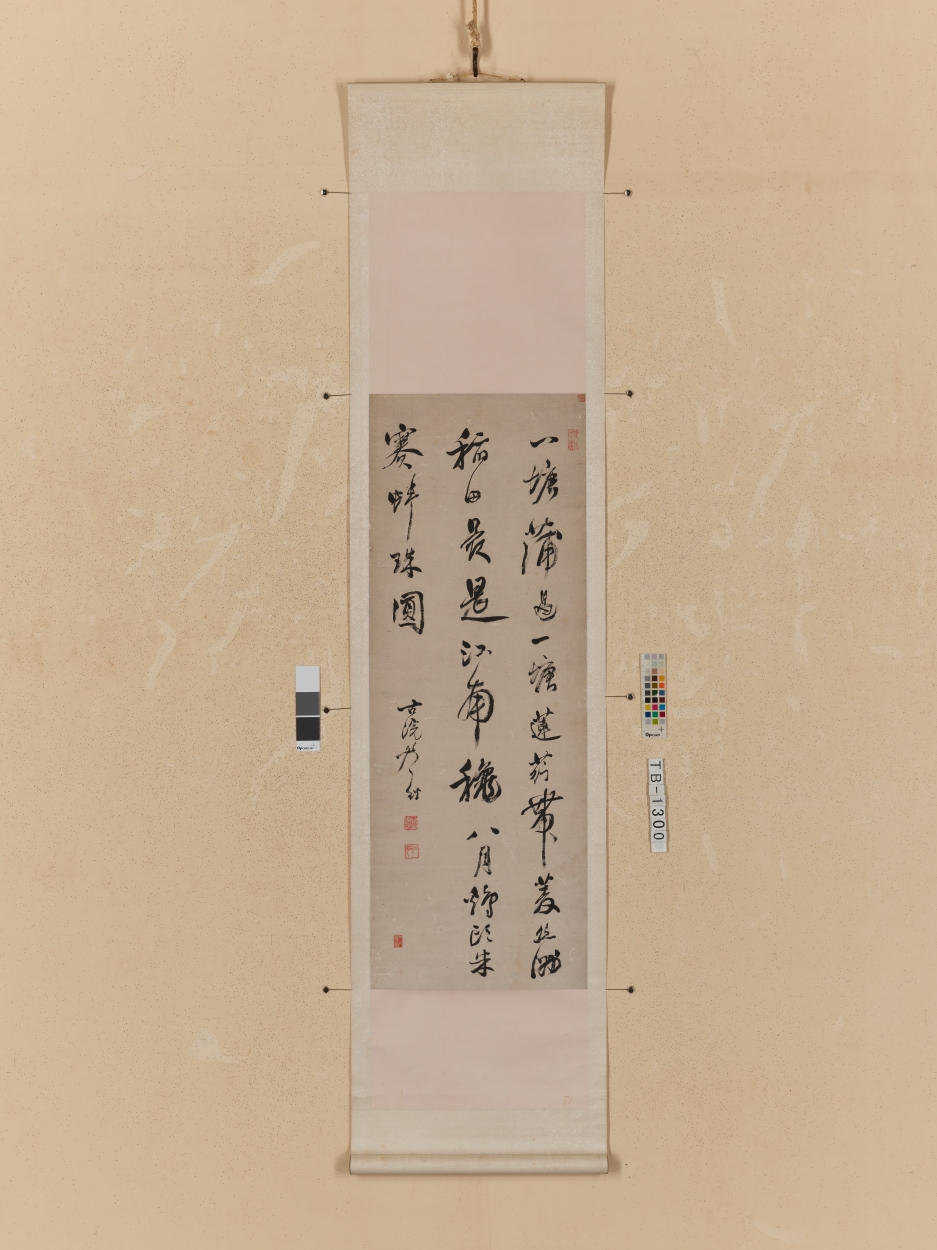 一塘蒲過一塘蓮荇帶菱絲滿
稻田最是江南穐八月鷄頭米
賽蚌珠圓
TB-1300